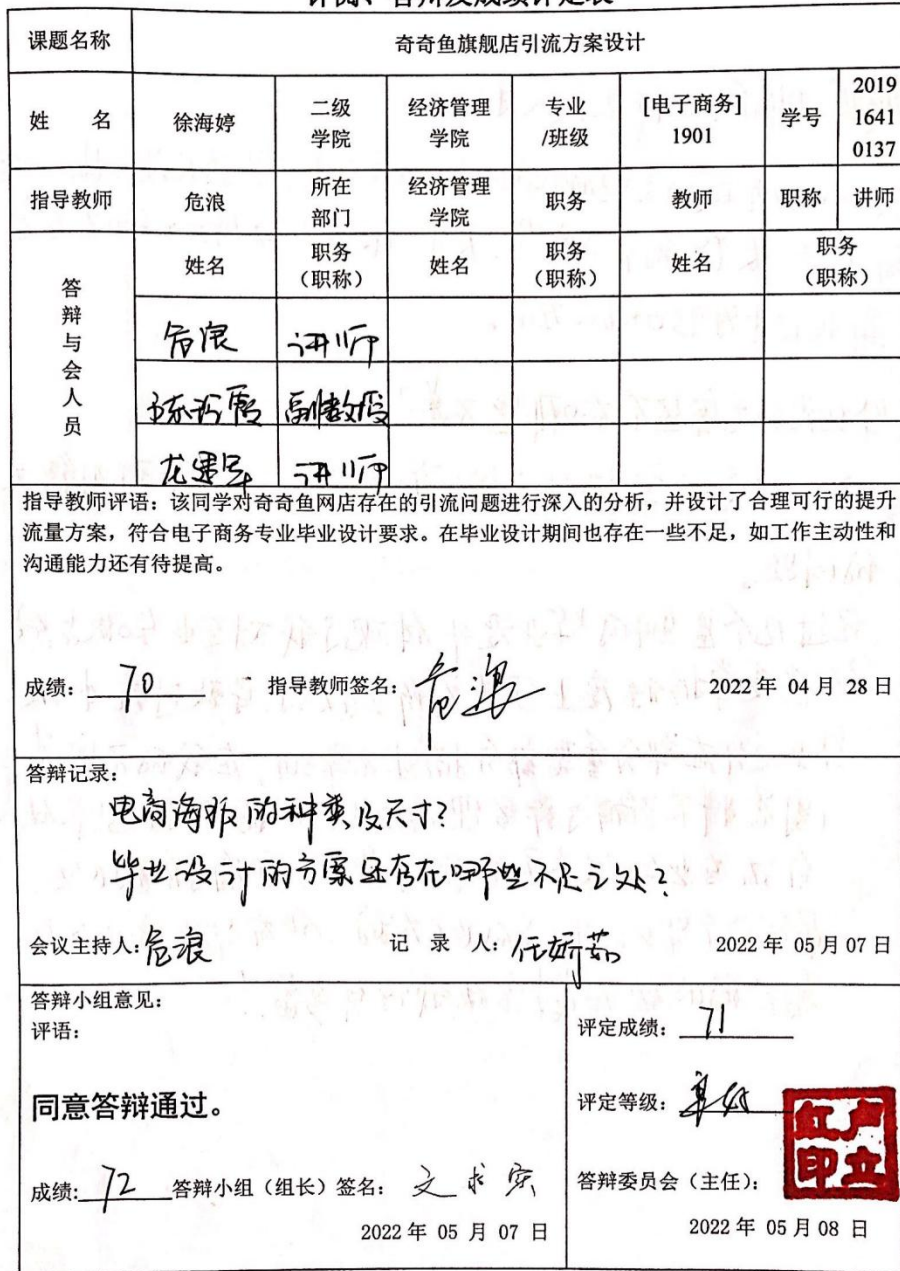 评阅、答辩及成绩评定表
课题名称 奇奇鱼旗舰店引流方案设计
姓 名 徐海婷 二级学院 经济管理学院 专业/班级 [电子商务]1901 学号 2019 1641 0137
指导教师 危浪 所在部门 经济管理学院 职务 教师 职称 讲师
答辩与会人员 姓名 职务（职称） 姓名 职务（职称） 姓名 职务（职称）
危浪 讲师
副教授
龙建军 讲师
指导教师评语：该同学对奇奇鱼网店存在的引流问题进行深入的分析，并设计了合理可行的提升
流量方案，符合电子商务专业毕业设计要求。在毕业设计期间也存在一些不足，如工作主动性和
沟通能力还有待提高。
成绩： 70 指导教师签名： 危浪 2022 年 04 月 28 日
答辩记录：
电商海报的种类及尺寸？
毕业设计的方案还存在哪些不足之处？
会议主持人：危浪 记 录 人：任娇茹 2022 年 05 月 07 日
答辩小组意见：
评语：
同意答辩通过。
成绩: 72 答辩小组（组长）签名： 文求实
2022 年 05 月 07 日
评定成绩： 71
评定等级：
答辩委员会（主任）： 卢立红印
2022 年 05 月 08 日